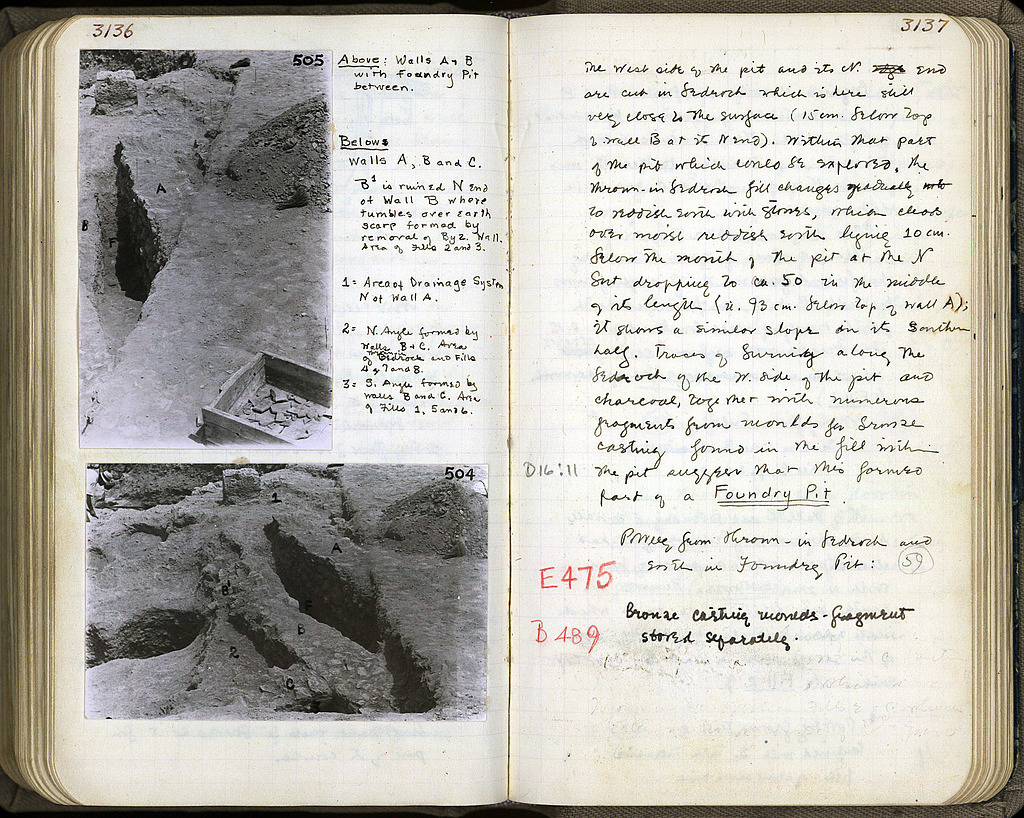 3136
505
Above: Walls A & B
with Foundry Pit
between.
Below:
Walls A, B and C.
B¹ is ruined N end
of Wall B where
tumbles over earth
scarp formed by
removal of Byz. Wall.
Area of Fills 2 and 3.
1 = Area of Drainage System
N of Wall A.
2 = N. Angle formed by
Walls B & C. Area
of Bedrock and Fills
4, 7 and 8.
3 = S. Angle formed by
walls B and C. Area
of Fills 1, 5 and 6.
A
B
F
504
1
A
B¹
F
B
2
C
3
3137
The West side of the pit and its N. end
are cut in bedrock which is here still
very close to the surface (15 cm. below top
of wall B at its N end). Within that part
of the pit which could be explored, the
thrown-in bedrock fill changes gradually
to reddish earth with stones, which
over moist reddish earth lying 10 cm.
below the mouth of the pit at the N
but dropping to ca. 50 in the middle
of its length (i.e. 93 cm. below top of wall A);
it shows a similar slope on its southern
half. Traces of burning along the
bedrock of the W. side of the pit and
charcoal, together with numerous
fragments from moulds for bronze
casting found in the fill within
D16:11
the pit suggest that this formed
part of a Foundry Pit.
Pottery from thrown-in bedrock and
earth in Foundry Pit: 59
E475
Bronze casting moulds - fragment
B 489
stored separately.